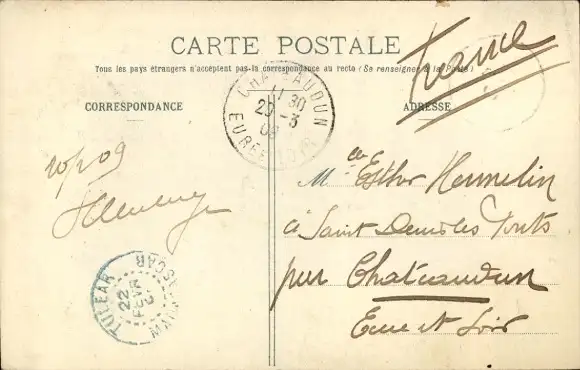 CARTE POSTALE
Tous les pays étrangers n'acceptent pas la correspondance au recto (Se renseigner à la Poste)
France
CORRESPONDANCE
ADRESSE
CHATEAUDUN
11 30
20 -3
09
EURE ET LOIR
Melle Esther Hermelin
à Saint Denis les Ponts
par Chateaudun
Eure et Loir
TULEAR
22
FEVR
MADAGASCAR